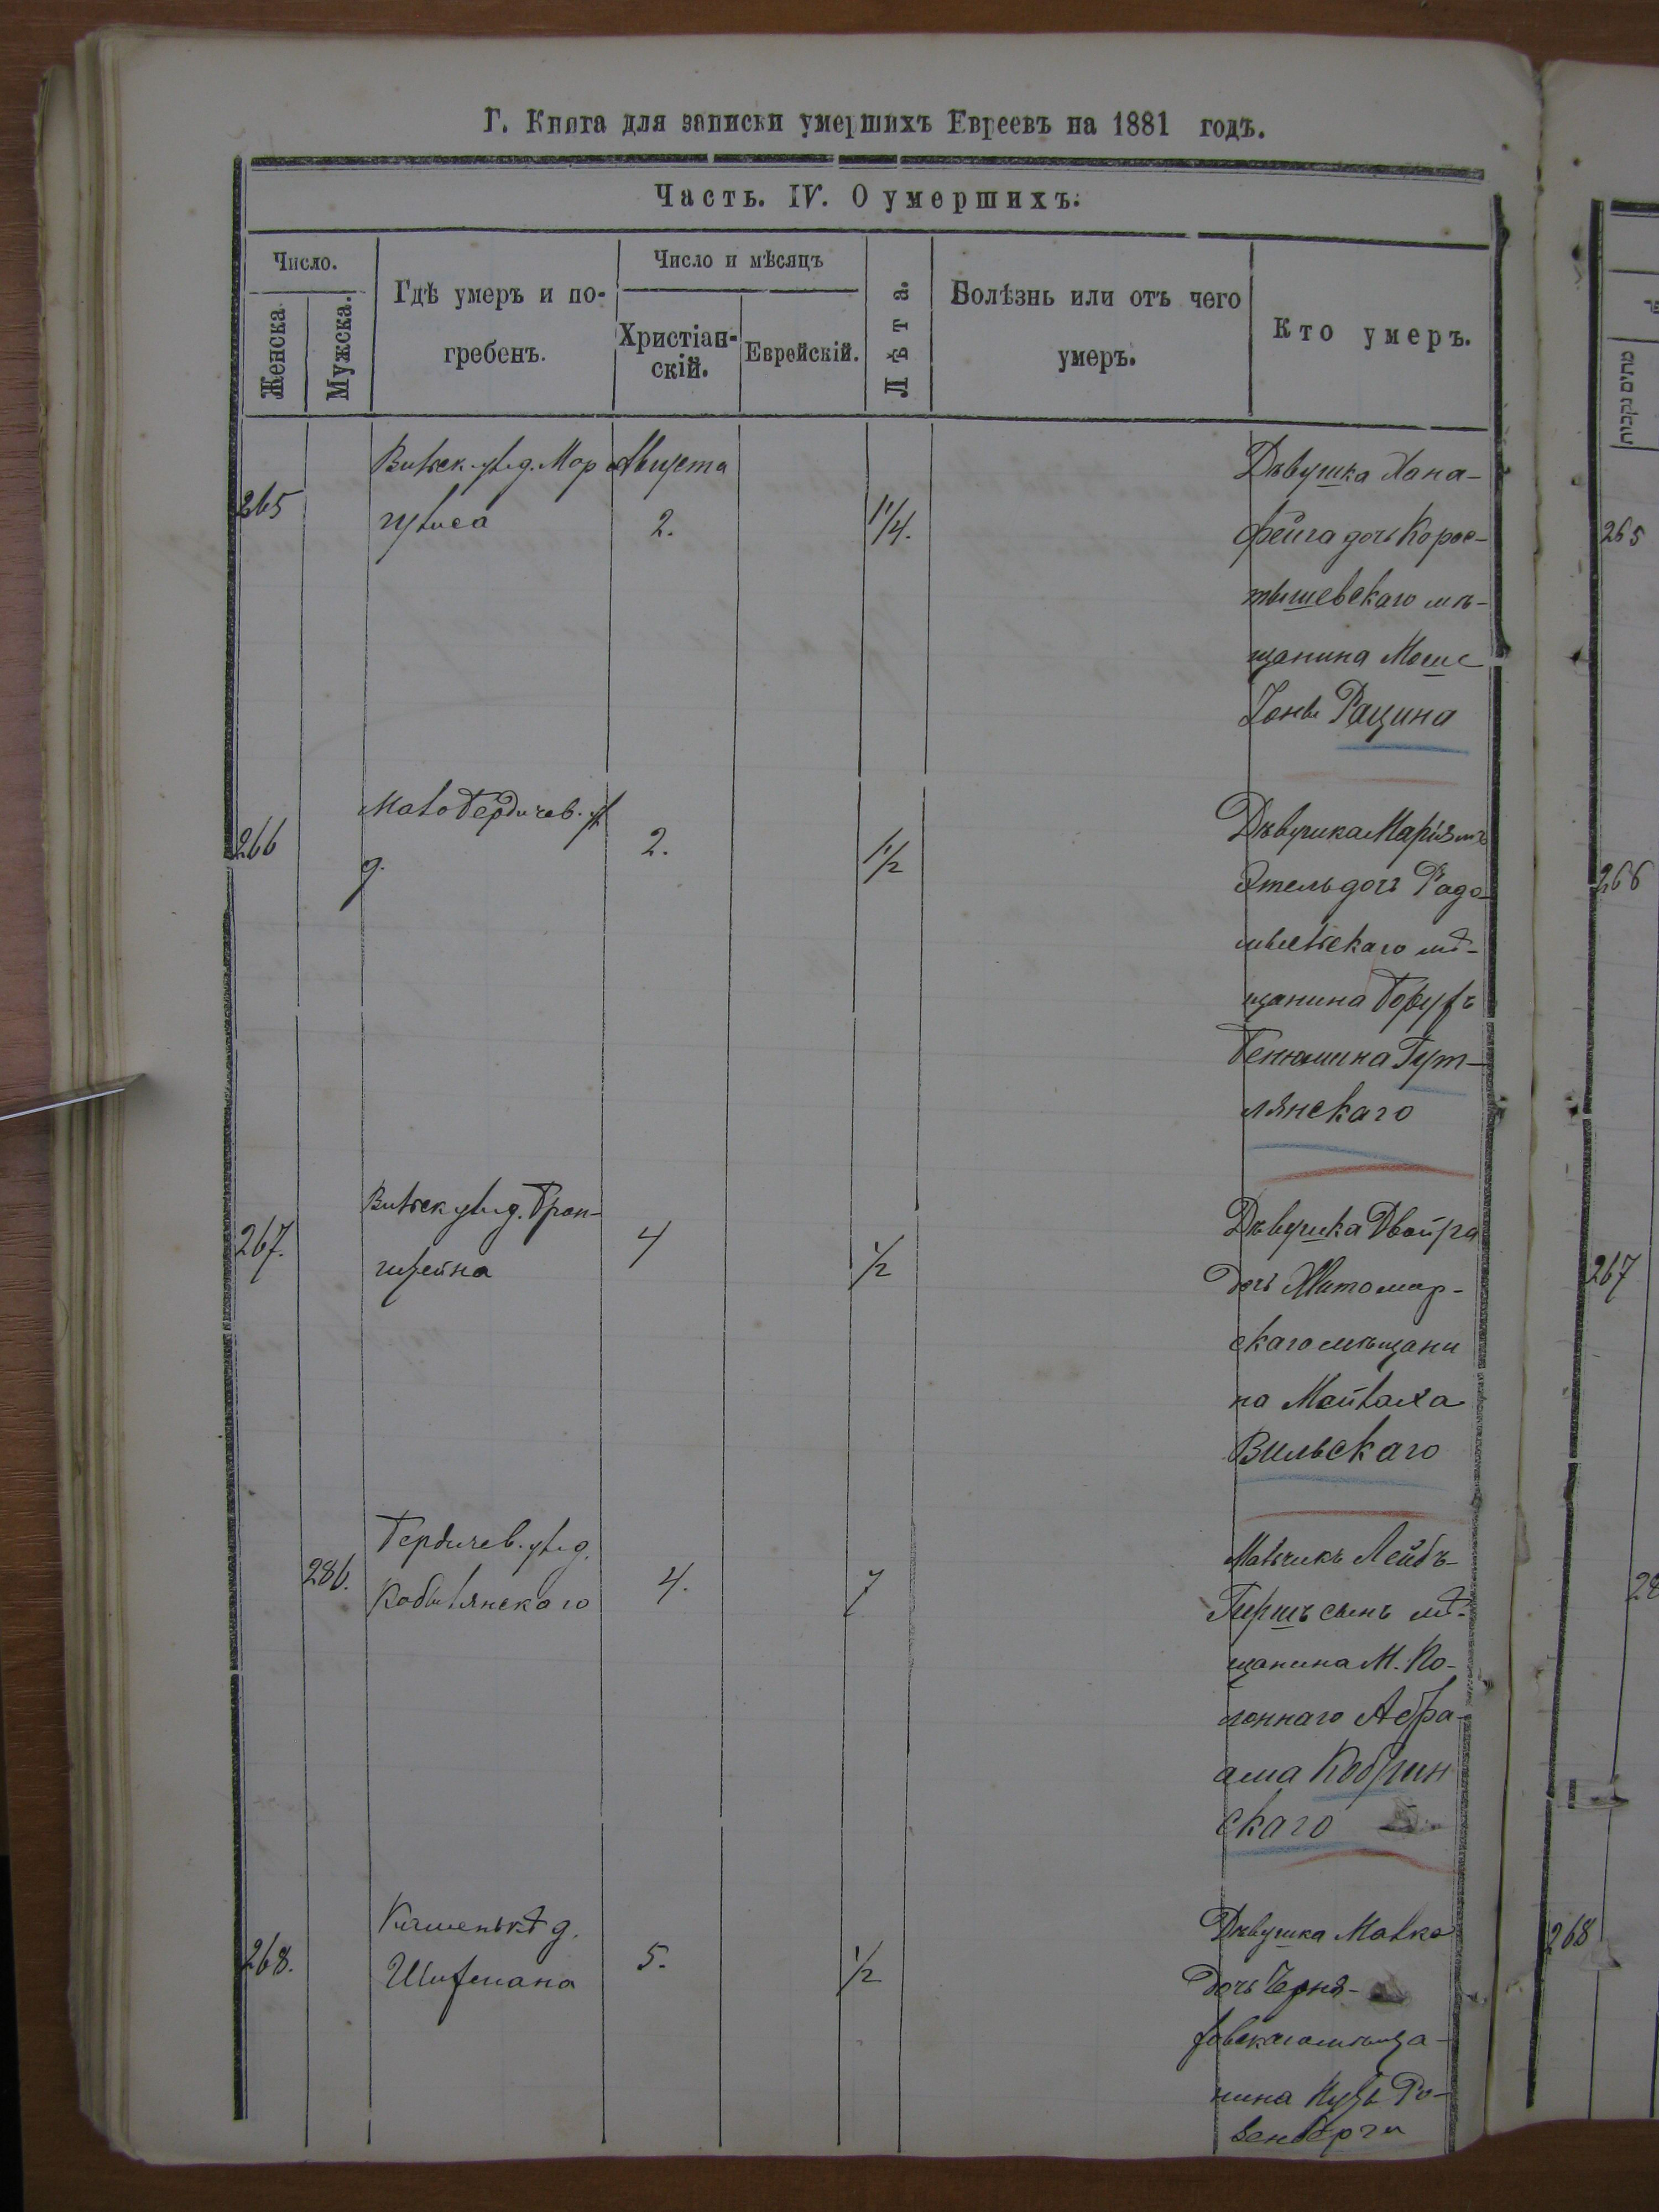 Г. Книга для записки умершихъ Евреевъ на 1881 годъ.
Часть. IV. О умершихъ.
Число.
Женска.
Мужска.
Гдѣ умеръ и по-
гребенъ.
Число и мѣсяцъ
Христіан-
скій.
Еврейскій.
Лѣта.
Болѣзнь или отъ чего
умеръ.
Кто умеръ.
265
Вильск. ул. д. Мор
гулиса
Августа
2.
1 1/4.
Дѣвушка Хана-
Фейга дочь Корос-
тышевскаго мѣ-
щанина Моше
Іоны Рацина
265
266
Мало Бердичев. ул
д.
2.
1 1/2
Дѣвушка Маріямъ
Этель дочь Радо-
мысльскаго мѣ-
щанина Борухъ
Бенюмина Гут-
лянскаго
266
267.
Вильск ул. д. Брон-
штейна
4
1/2
Дѣвушка Двойра
дочь Житомир-
скаго мѣщани
на
Вильскаго
267
286.
Бердичев. ул. д.
Кобылянского
4.
7
Мальчикъ Лейбъ-
Гиршъ сынъ мѣ-
щанина М. По-
лоннаго Абра-
ама Кобрин
скаго
28
268.
д.
Шифмана
5.
1/2
Дѣвушка Малка
дочь Черня-
ховскаго мѣща-
нина Ро-
зенберга
268